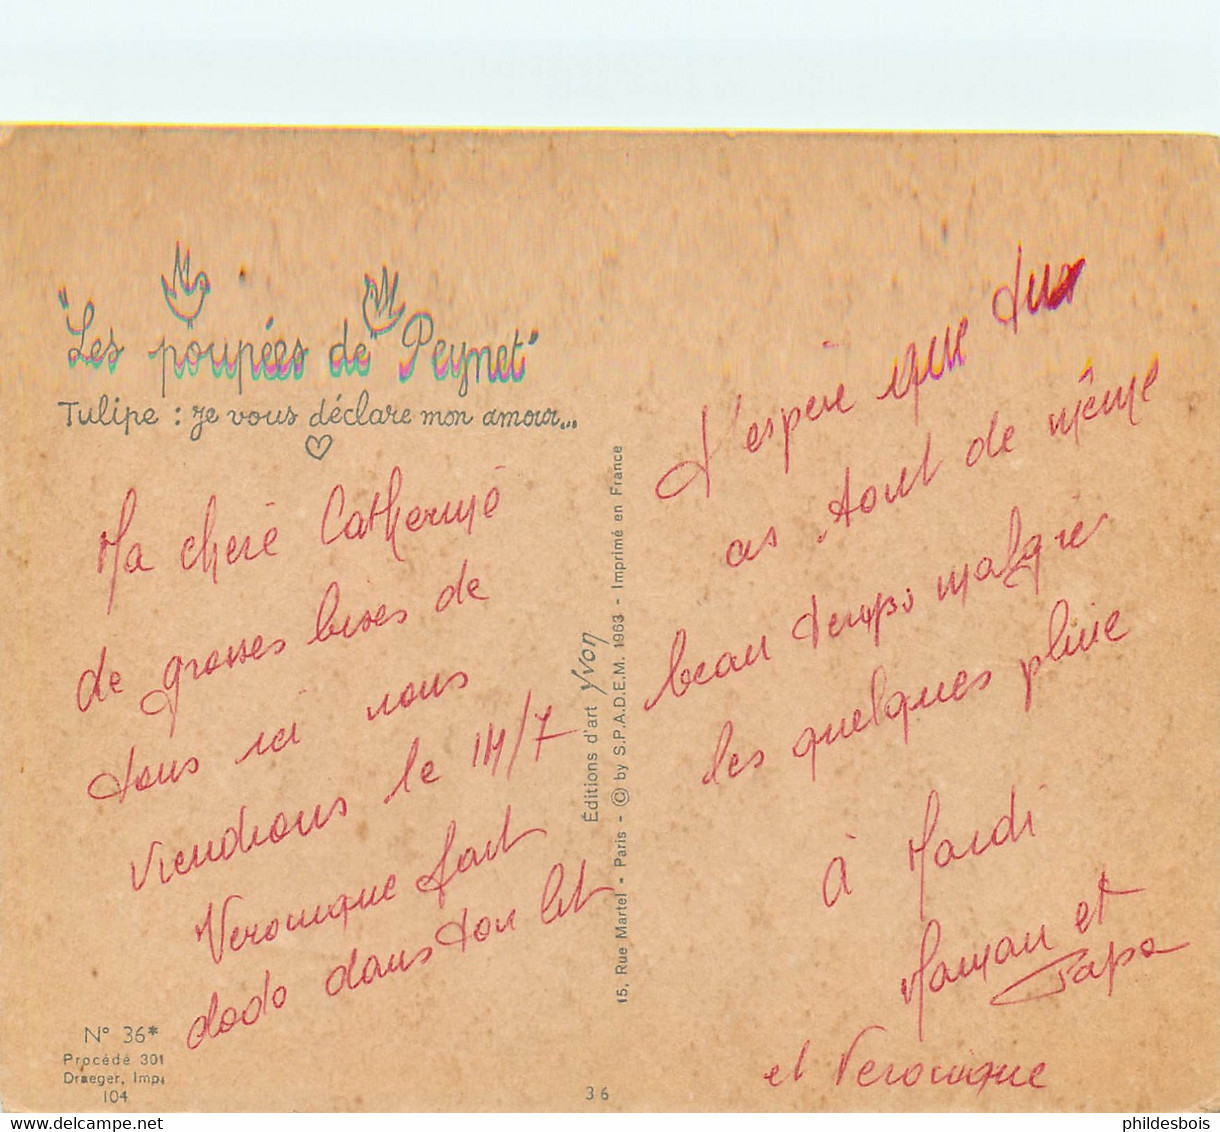 "Les poupées de Peynet"
Tulipe : je vous déclare mon amour...
Ma chère Catherine
de grosses bises de
tous ici nous
viendrons le 14/7
Veronique fait
dodo dans ton lit
N° 36*
Procédé 301
Draeger, Imp.
104
Éditions d'art Yvon
15, Rue Martel - Paris - © by S.P.A.D.E.M. 1963 - Imprimé en France
36
J'espère que tu
as tout de même
beau temps malgré
les quelques pluie
à Mardi
Maman et
Papa
et Veronique
phildesbois